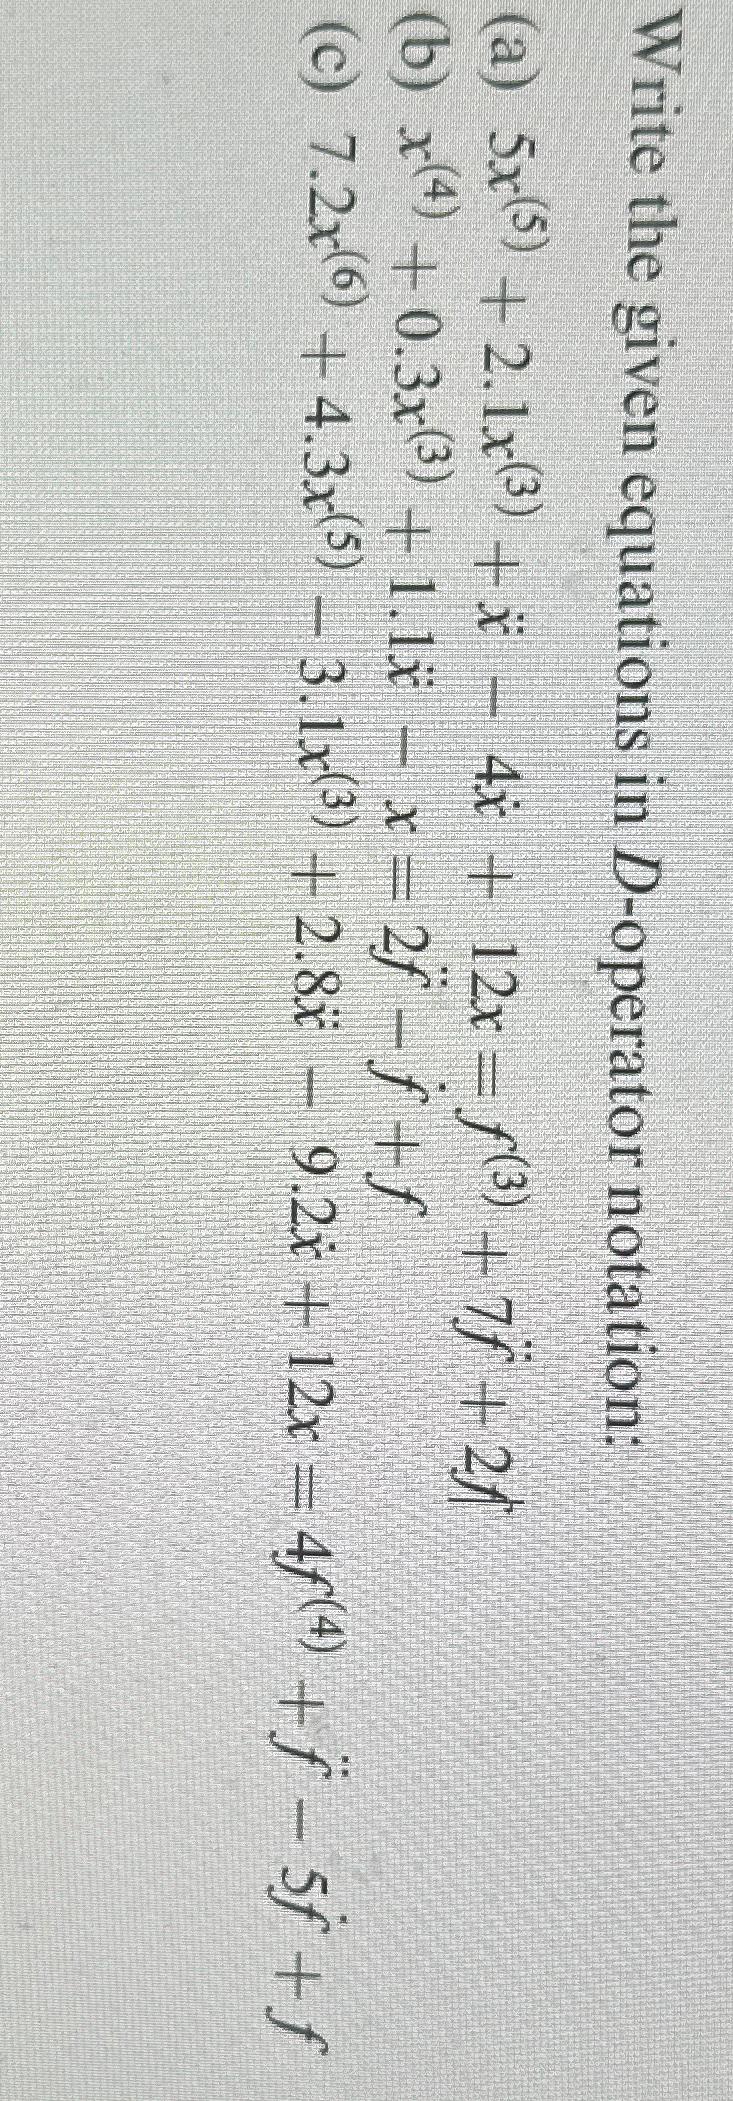 Write the given equations in D-operator notation:
(a) 5x⁽⁵⁾ + 2.1x⁽³⁾ + ẍ − 4ẋ + 12x = f⁽³⁾ + 7f̈ + 2f
(b) x⁽⁴⁾ + 0.3x⁽³⁾ + 1.1ẍ − x = 2f̈ − ḟ + f
(c) 7.2x⁽⁶⁾ + 4.3x⁽⁵⁾ − 3.1x⁽³⁾ + 2.8ẍ − 9.2ẋ + 12x = 4f⁽⁴⁾ + f̈ − 5ḟ + f